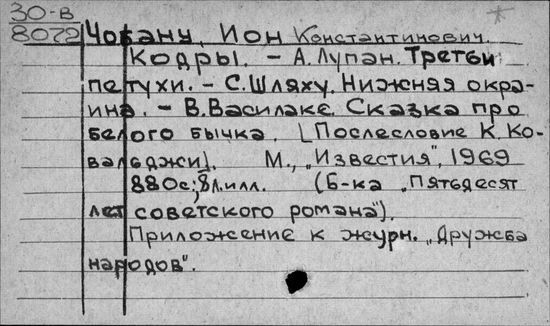 30-В
8072
Чобану, Ион Константинович.
Кодры. – А.Лупан. Третьи
петухи. – С.Шляху. Нижняя окра-
ина. – В.Василаке. Сказка про
белого бычка. [Послесловие К. Ко-
вальджи]. М., „Известия", 1969
880с.; 8л.илл. (Б-ка „Пятьдесят
лет советского романа").
Приложение к журн. „Дружба
народов".